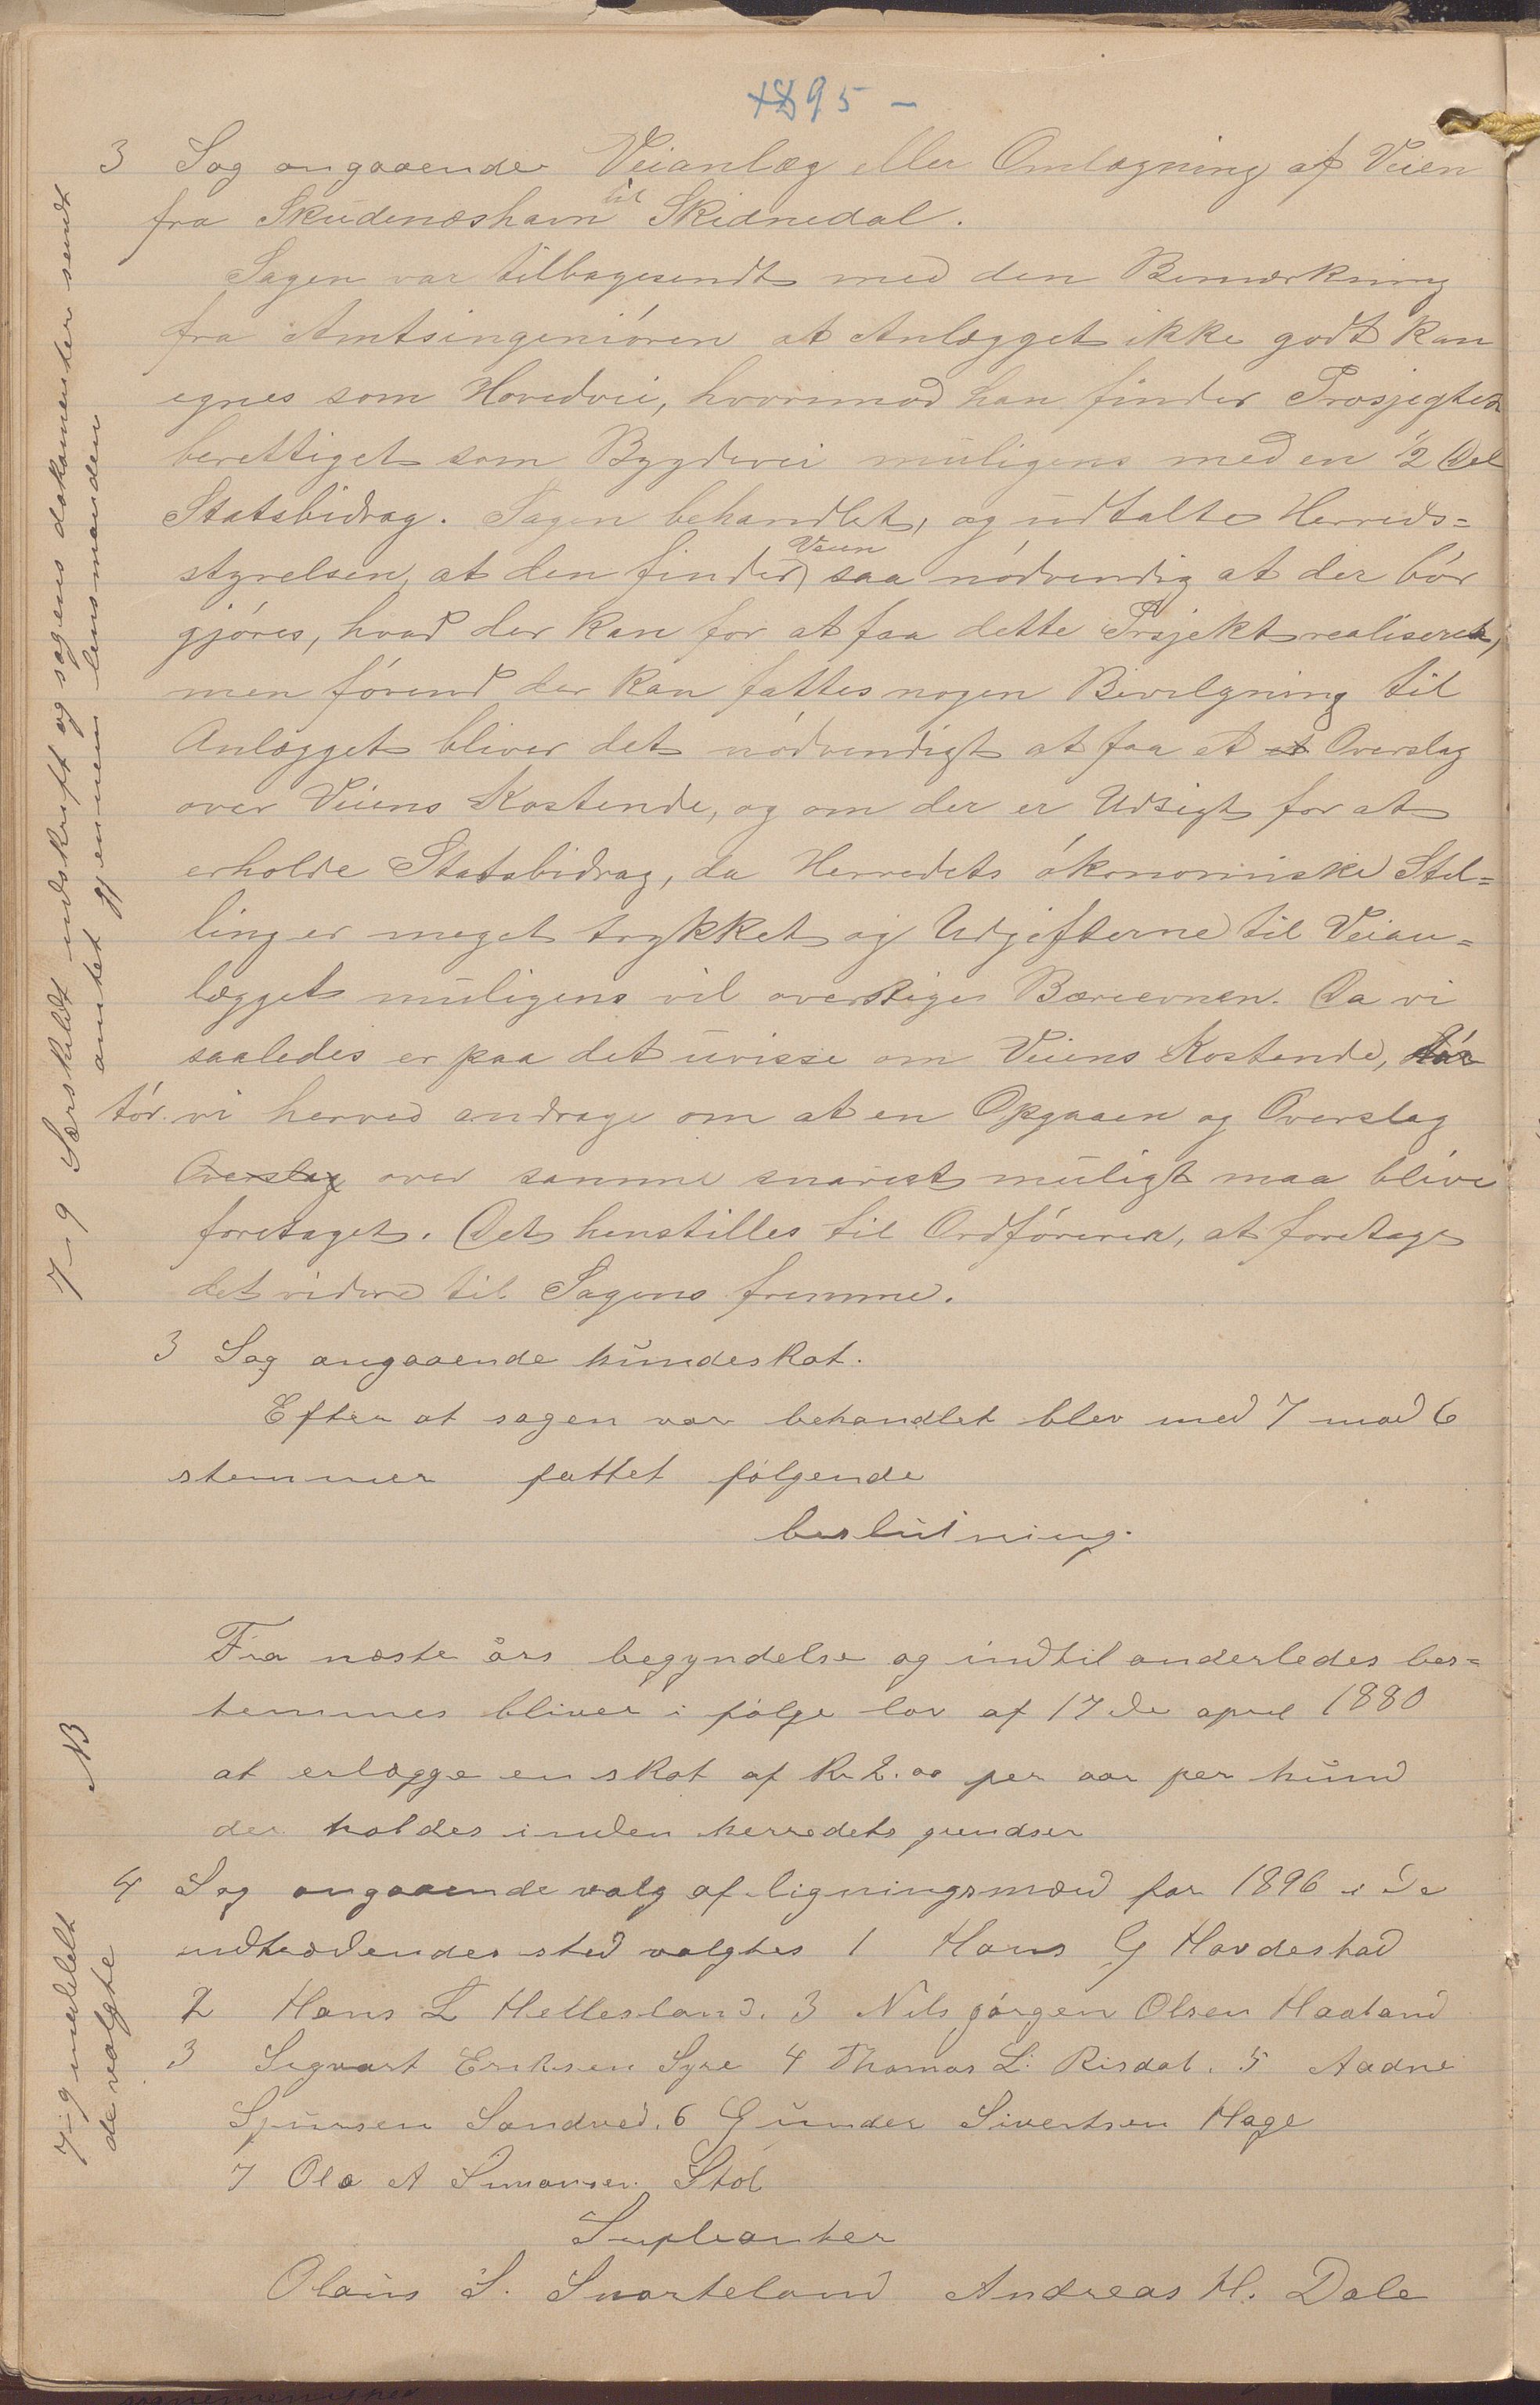 1895 -
3 Sag angaaende Veianlæg eller Omlægning af Veien
fra Skudenæshavn til Skidnedal.
Sagen var tilbagesendt med den Bemærkning
fra Amtsingeniören at Anlægget ikke godt kan
egnes som Hovedvei, hvorimod han finder Prosjegtet
berettiget som Bygdevei muligens med en 1/2 Del
Statsbidrag. Sagen behandlet, og udtalte Herreds=
styrelsen, at den finder Veien saa nödvendig at der bör
gjöres, hvad der kan for at faa dette Prsjekt realiseret,
men förend der kan fattes nogen Bevilgning til
Anlægget bliver det nödvendigt at faa et et Overslag
over Veiens Kostende, og om der er Udsigt for at
erholde Statsbidrag, da Herredets ökonomiske Stil=
ling er meget trykket og Udgifterne til Veian=
lægget muligens vil overstiges Bæreevnen. Da vi
saaledes er paa det uvisse om Veiens Kostende, tör
tör vi herved andrage om at en Opgaaen og Overslag
Overslag over samme snarest muligt maa blive
foretaget. Det henstilles til Ordföreren, at foretage
det videre til Sagens fremme.
3 Sag angaaende hundeskat.
Efter at sagen var behandlet blev med 7 mod 6
stemmer fattet følgende
beslutning.
Fra næste års begyndelse og indtil anderledes bes=
temmes bliver i følge lov af 17de april 1880
at erlægge en skat af Kr 2.00 per aar per hund
der holdes inden herredets grændser
4 Sag angaaende valg af ligningsmænd for 1896 i de
udtrædendes sted valgtes 1 Hans G Havdestad
2 Hans L Hellesland. 3 Nils jörgen Olsen Haaland
3 Sigvart Eriksen Syre 4 Thomas L. Risdal. 5 Aadne
Sjursen Sandved. 6 Gunder Sivertsen Hage
7 Ola A Simonsen Stöl
Supleanter
Olaus S. Snorteland Andreas H. Dale
7-9 Særskildt udskrift og sagens dokumenter sendt
amtet gjennem lensmanden
NB
7-9 meddelt
de valgte